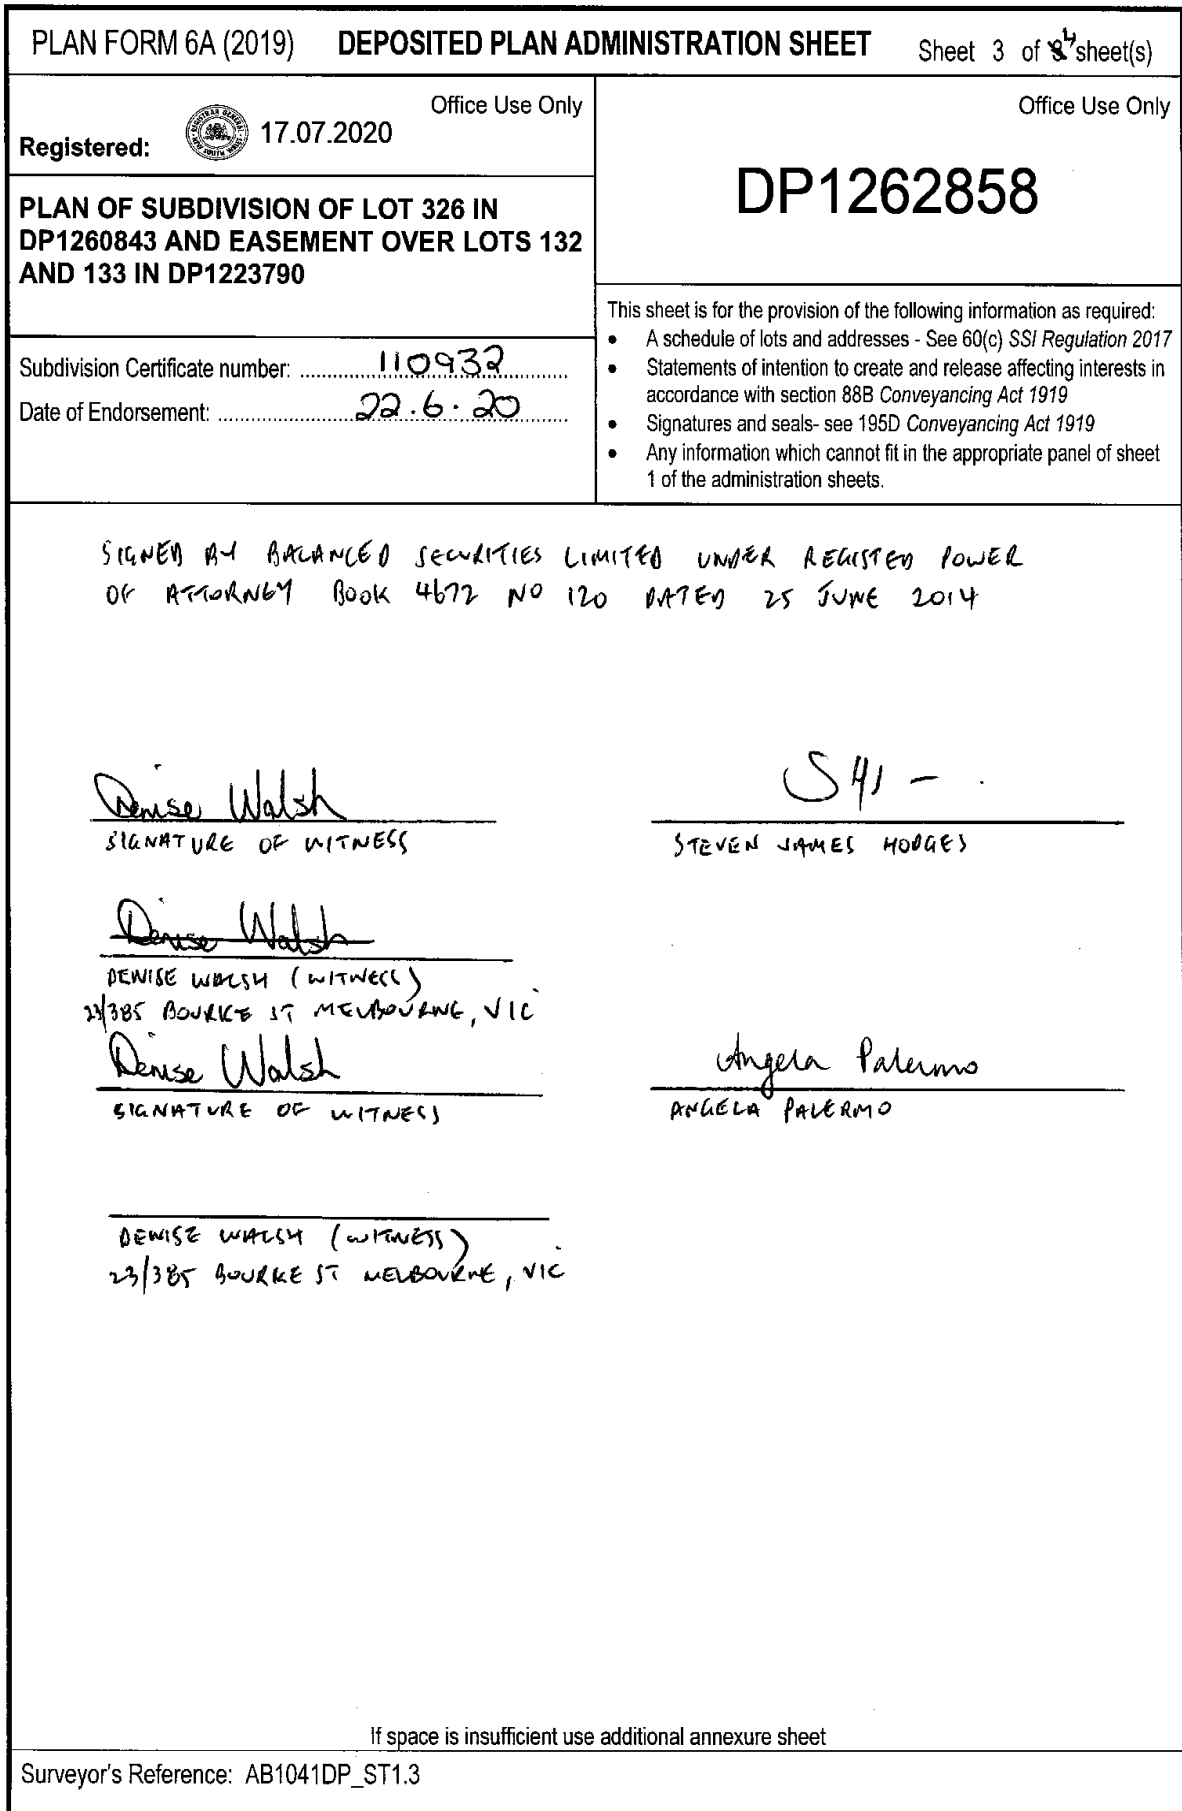 PLAN FORM 6A (2019) DEPOSITED PLAN ADMINISTRATION SHEET Sheet 3 of 4 sheet(s)
Office Use Only
Registered: 17.07.2020
PLAN OF SUBDIVISION OF LOT 326 IN
DP1260843 AND EASEMENT OVER LOTS 132
AND 133 IN DP1223790
Subdivision Certificate number: 110932
Date of Endorsement: 22.6.20
Office Use Only
DP1262858
This sheet is for the provision of the following information as required:
• A schedule of lots and addresses - See 60(c) SSI Regulation 2017
• Statements of intention to create and release affecting interests in
accordance with section 88B Conveyancing Act 1919
• Signatures and seals- see 195D Conveyancing Act 1919
• Any information which cannot fit in the appropriate panel of sheet
1 of the administration sheets.
SIGNED BY BALANCED SECURITIES LIMITED UNDER REGISTED POWER
OF ATTORNEY BOOK 4672 NO 120 DATED 25 JUNE 2014
Denise Walsh
SIGNATURE OF WITNESS
STEVEN JAMES HODGES
Denise Walsh
DENISE WALSH (WITNESS)
23/385 BOURKE ST MELBOURNE, VIC
Denise Walsh
SIGNATURE OF WITNESS
Angela Palermo
ANGELA PALERMO
DENISE WALSH (WITNESS)
23/385 BOURKE ST MELBOURNE, VIC
If space is insufficient use additional annexure sheet
Surveyor's Reference: AB1041DP_ST1.3